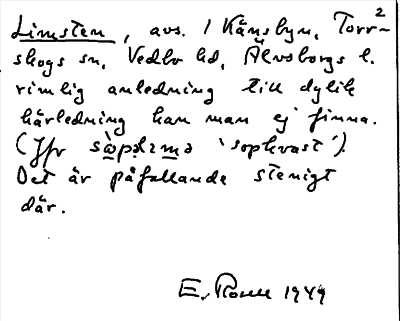 2
Limsten, avs. i Känsbyn, Torr-
skogs sn, Vedbo hd, Älvsborgs l.
rimlig anledning till dylik
härledning kan man ej finna.
(Jfr 'sopkvast').
Det är påfallande stenigt
där.
E. 1949